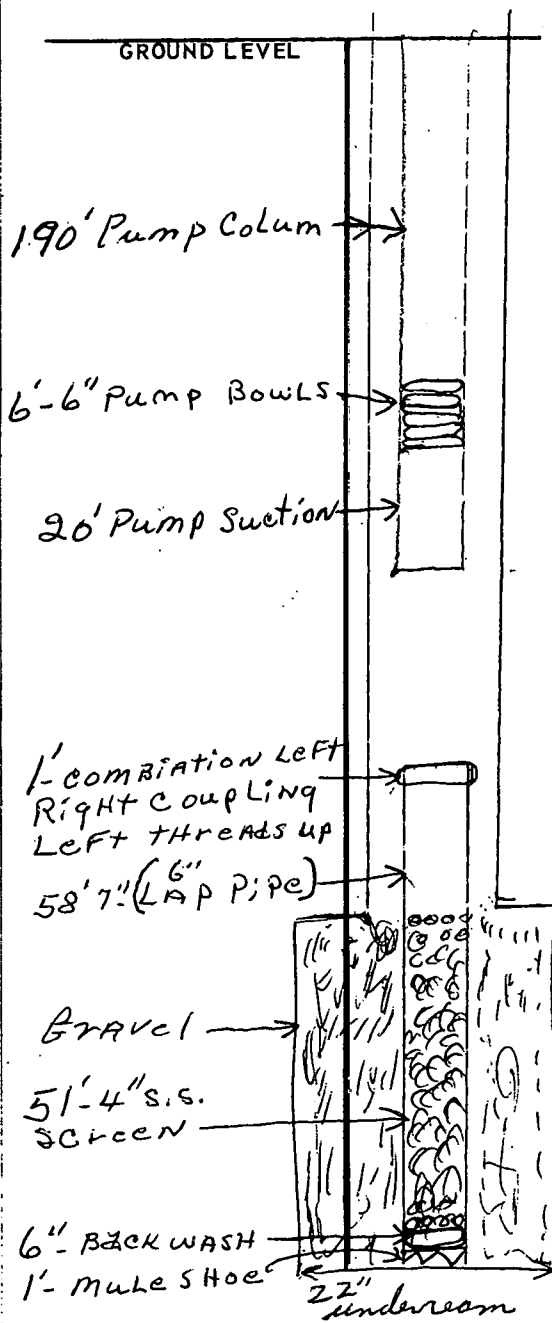 GROUND LEVEL
190' Pump Colum
6'-6" Pump BowLS
20' Pump Suction
1'-comBiATion Left
Right Coupling
Left threads up
58' 7". (6" LAP Pipe)
Gravel
51'-4" S.S.
Screen
6"- BACKWASH
1'- Mule SHoe
22"
underream